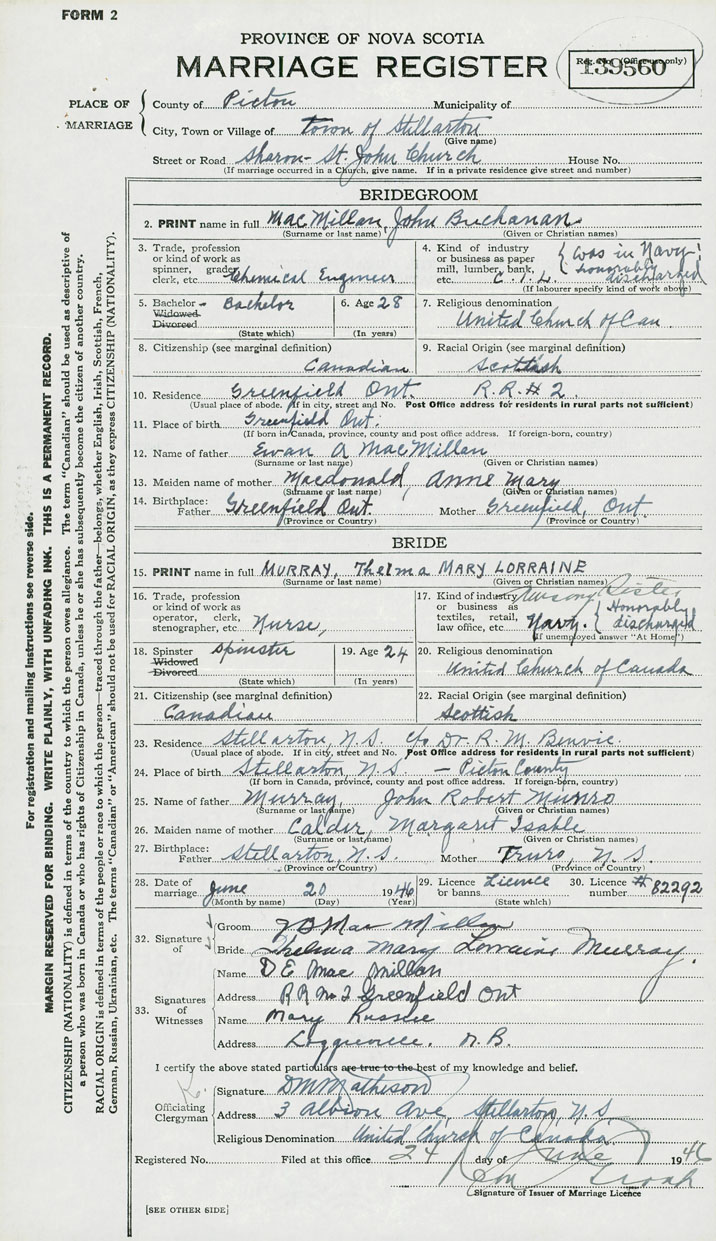 FORM 2
PROVINCE OF NOVA SCOTIA
MARRIAGE REGISTER
Reg. No. (Office use only)
139560
PLACE OF MARRIAGE
County of Pictou Municipality of
City, Town or Village of Town of Stellarton
(Give name)
Street or Road Sharon-St. John Church House No.
(If marriage occurred in a Church, give name. If in a private residence give street and number)
BRIDEGROOM
2. PRINT name in full MacMillan, John Buchanan
(Surname or last name) (Given or Christian names)
3. Trade, profession or kind of work as spinner, grader, clerk, etc. Chemical Engineer
4. Kind of industry or business as paper mill, lumber, bank, etc. C.I.L. { was in Navy! honorably discharged
(If labourer specify kind of work above)
5. Bachelor Widowed Divorced - Bachelor
(State which)
6. Age 28
(In years)
7. Religious denomination
United Church of Can
8. Citizenship (see marginal definition)
Canadian
9. Racial Origin (see marginal definition)
Scottish
10. Residence Greenfield Ont. R.R. # 2.
(Usual place of abode. If in city, street and No. Post Office address for residents in rural parts not sufficient)
11. Place of birth Greenfield Ont.
(If born in Canada, province, county and post office address. If foreign-born, country)
12. Name of father Ewan A MacMillan
(Surname or last name) (Given or Christian names)
13. Maiden name of mother Macdonald, Anne Mary
(Surname or last name) (Given or Christian names)
14. Birthplace: Father Greenfield Ont. Mother Greenfield, Ont.
(Province or Country) (Province or Country)
BRIDE
15. PRINT name in full MURRAY, Thelma MARY LORRAINE
(Surname or last name) (Given or Christian names)
16. Trade, profession or kind of work as operator, clerk, stenographer, etc. Nurse,
17. Kind of industry or business as textiles, retail, law office, etc. Nursing Sister Navy. { Honorably discharged
(If unemployed answer "At Home")
18. Spinster Widowed Divorced Spinster
(State which)
19. Age 24
(In years)
20. Religious denomination
United Church of Canada
21. Citizenship (see marginal definition)
Canadian
22. Racial Origin (see marginal definition)
Scottish
23. Residence Stellarton, N.S. c/o Dr. R. M. Benvie.
(Usual place of abode. If in city, street and No. Post Office address for residents in rural parts not sufficient)
24. Place of birth Stellarton, N.S. - Pictou County
(If born in Canada, province, county and post office address. If foreign-born, country)
25. Name of father Murray, John Robert Munro
(Surname or last name) (Given or Christian names)
26. Maiden name of mother Calder, Margaret Isable
(Surname or last name) (Given or Christian names)
27. Birthplace: Father Stellarton, N.S. Mother Truro, N.S.
(Province or Country) (Province or Country)
28. Date of marriage June 20 1946
(Month by name) (Day) (Year)
29. Licence or banns Licence
(State which)
30. Licence number # 82292
32. Signature of
Groom J B MacMillan
Bride Thelma Mary Lorraine Murray.
33. Signatures of Witnesses
Name D E MacMillan
Address R R No 2 Greenfield Ont
Name Mary
Address Loggieville. N.B.
I certify the above stated particulars are true to the best of my knowledge and belief.
Officiating Clergyman
Signature D M Matheson
Address 3 Albion Ave, Stellarton, N.S.
Religious Denomination United Church of Canada
Registered No. Filed at this office 24 day of June 1946
Signature of Issuer of Marriage Licence
[SEE OTHER SIDE]
For registration and mailing instructions see reverse side.
MARGIN RESERVED FOR BINDING. WRITE PLAINLY, WITH UNFADING INK. THIS IS A PERMANENT RECORD.
CITIZENSHIP (NATIONALITY) is defined in terms of the country to which the person owes allegiance. The term "Canadian" should be used as descriptive of
a person who was born in Canada or who has rights of Citizenship in Canada, unless he or she has subsequently become the citizen of another country.
RACIAL ORIGIN is defined in terms of the people or race to which the person—traced through the father—belongs, whether English, Irish, Scottish, French,
German, Russian, Ukrainian, etc. The terms "Canadian" or "American" should not be used for RACIAL ORIGIN, as they express CITIZENSHIP (NATIONALITY).